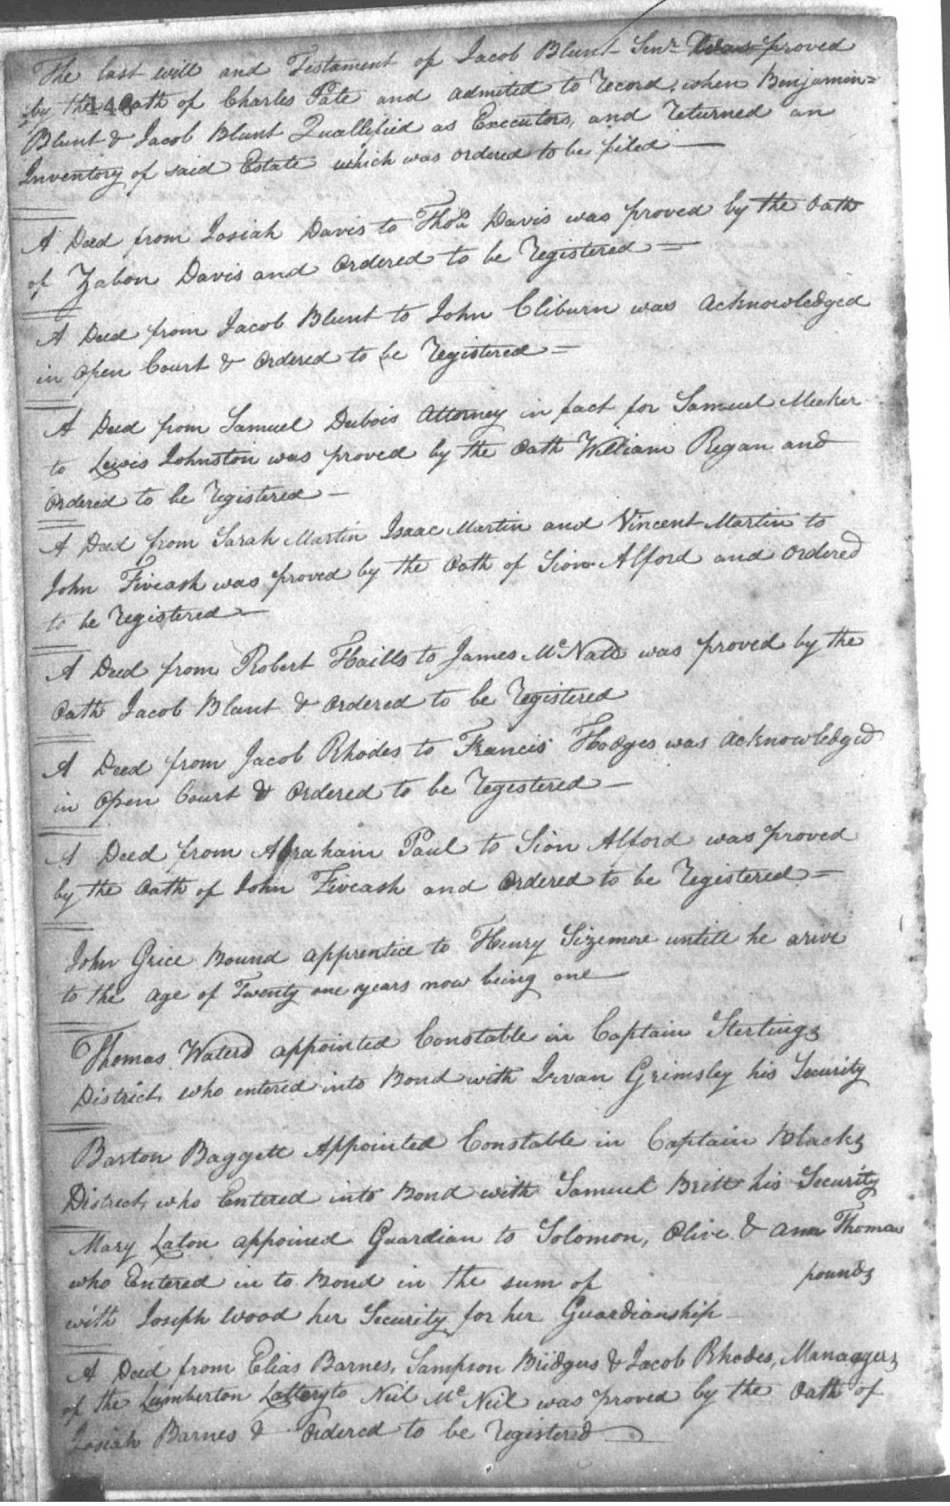 The last will and Testament of Jacob Blunt Senr Was proved
by the Oath of Charles Pate and admited to record, when Benjamin
Blunt & Jacob Blunt Quallefied as Executors, and returned an
Inventory of said Estate which was ordered to be filed —
A Deed from Josiah Davis to Thos Davis was proved by the Oath
of Zabon Davis and Ordered to be registered —
A Deed from Jacob Blunt to John Cliburn was acknowledged
in open Court & Ordered to be registered —
A Deed from Samuel Dubois Attorney in fact for Samuel Meeker
to Lewis Johnston was proved by the Oath William Regan and
Ordered to be registered —
A Deed from Sarah Martin Isaac Martin and Vincent Martin to
John Fiveash was proved by the Oath of Sion Alford and Ordered
to be registered —
A Deed from Robert Haills to James McNatt was proved by the
Oath Jacob Blunt & Ordered to be registered
A Deed from Jacob Rhodes to Francis Hodges was acknowledged
in Open Court & Ordered to be registered —
A Deed from Abraham Paul to Sion Alford was proved
by the Oath of John Fiveash and Ordered to be registered —
John Grice Bound apprentice to Henry Sizemore untill he arive
to the age of Twenty one years now being one —
Thomas Waters appointed Constable in Captain Sterlings
District, who entered into Bond with Irvan Grimsley his Security
Barton Baggett Appointed Constable in Captain Blacks
District, who Entered into Bond with Samuel Britt his Security
Mary Laton appoined Guardian to Solomon, Olive & Ann Thomas
who Entered in to Bond in the sum of pounds
with Joseph Wood her Security for her Guardianship
A Deed from Elias Barnes, Sampson Bridgers & Jacob Rhodes, Managers
of the Lumberton Lottery to Neil McNeil was proved by the Oath of
Josiah Barnes & Ordered to be registered